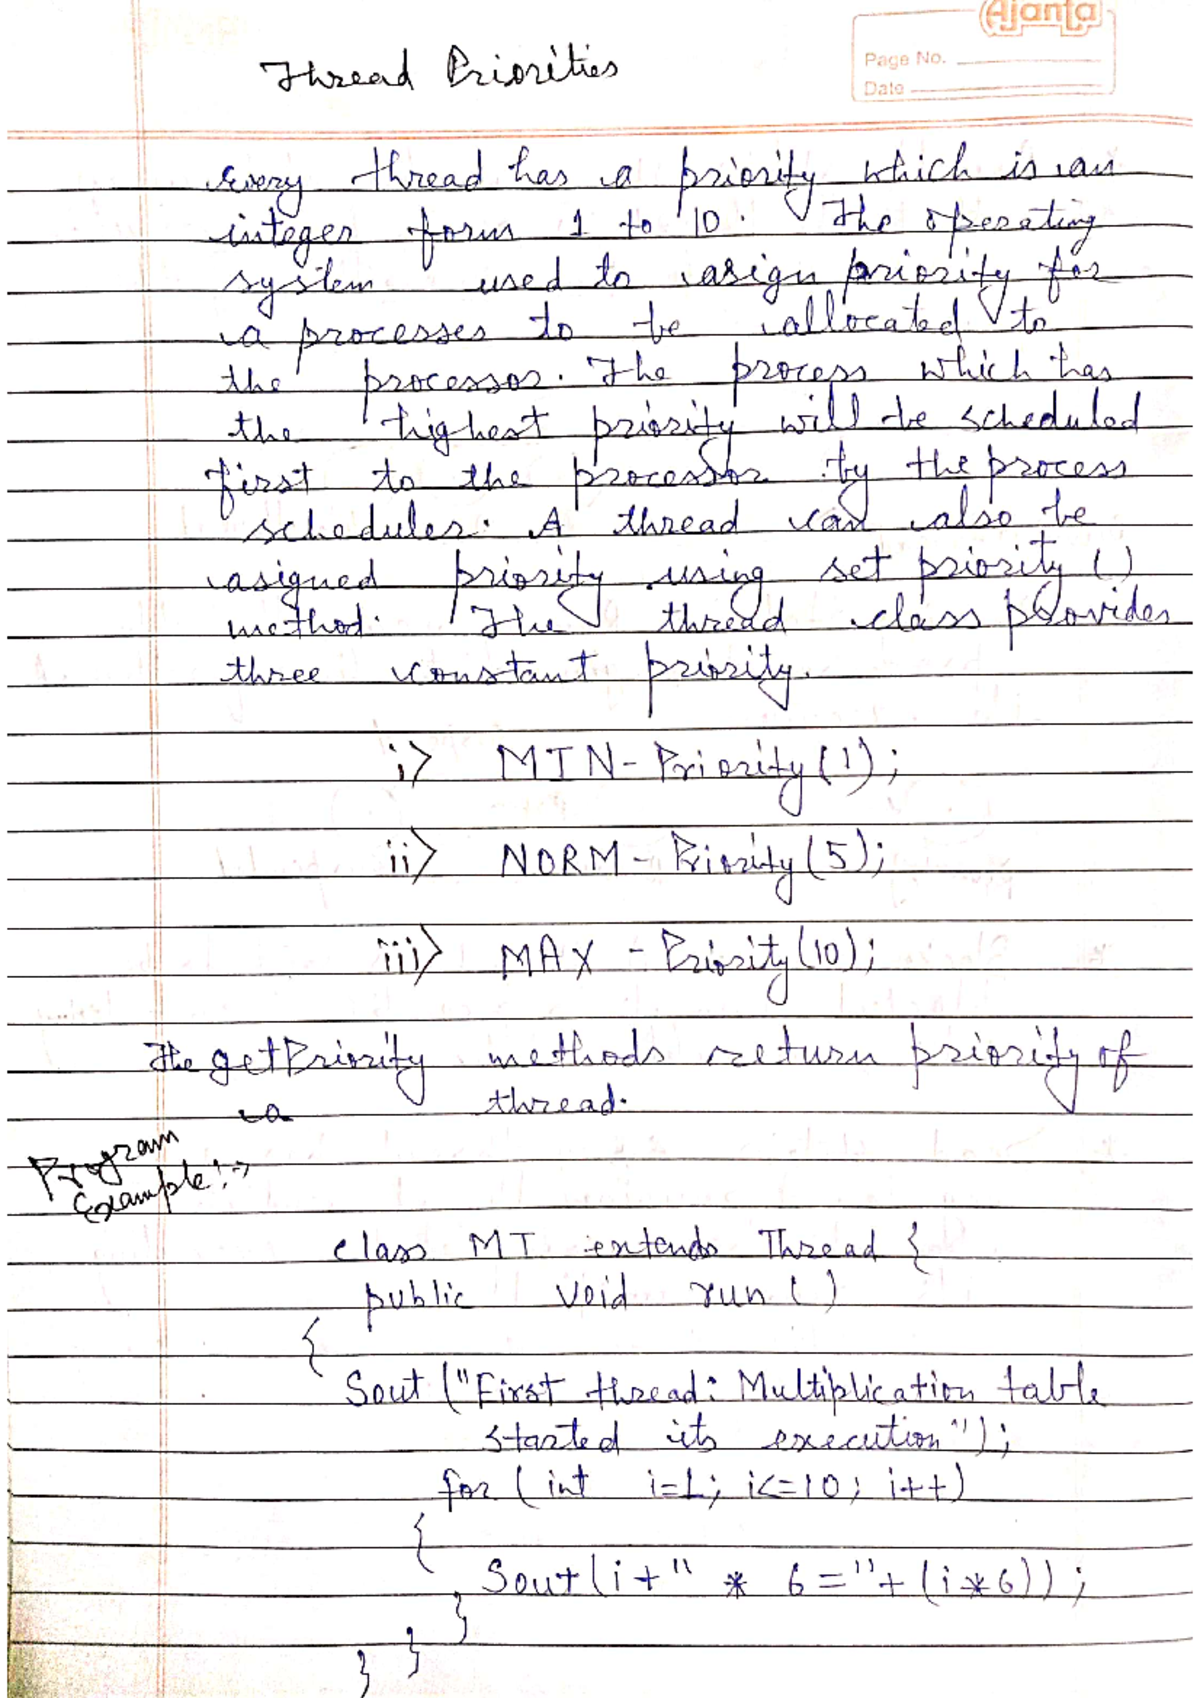 Ajanta
Page No.
Date
Thread Priorities
every thread has a priority which is an
integer form 1 to 10. The operating
system used to asign priority for
a processes to be allocated to
the processor. The process which has
the highest priority will be scheduled
first to the processor by the process
scheduler. A thread can also be
asigned priority using set priority ()
method. The thread class provides
three constant priority.
i) MIN-Priority(1);
ii) NORM-Priority(5);
iii) MAX - Priority(10);
The getPriority methods return priority of
a thread.
Program
Example:->
class MT extends Thread {
public void run ()
{
Sout ("First thread: Multiplication table
started its execution");
for (int i=1; i<=10; i++)
{
Sout(i+" * 6 ="+ (i*6));
}
}
}